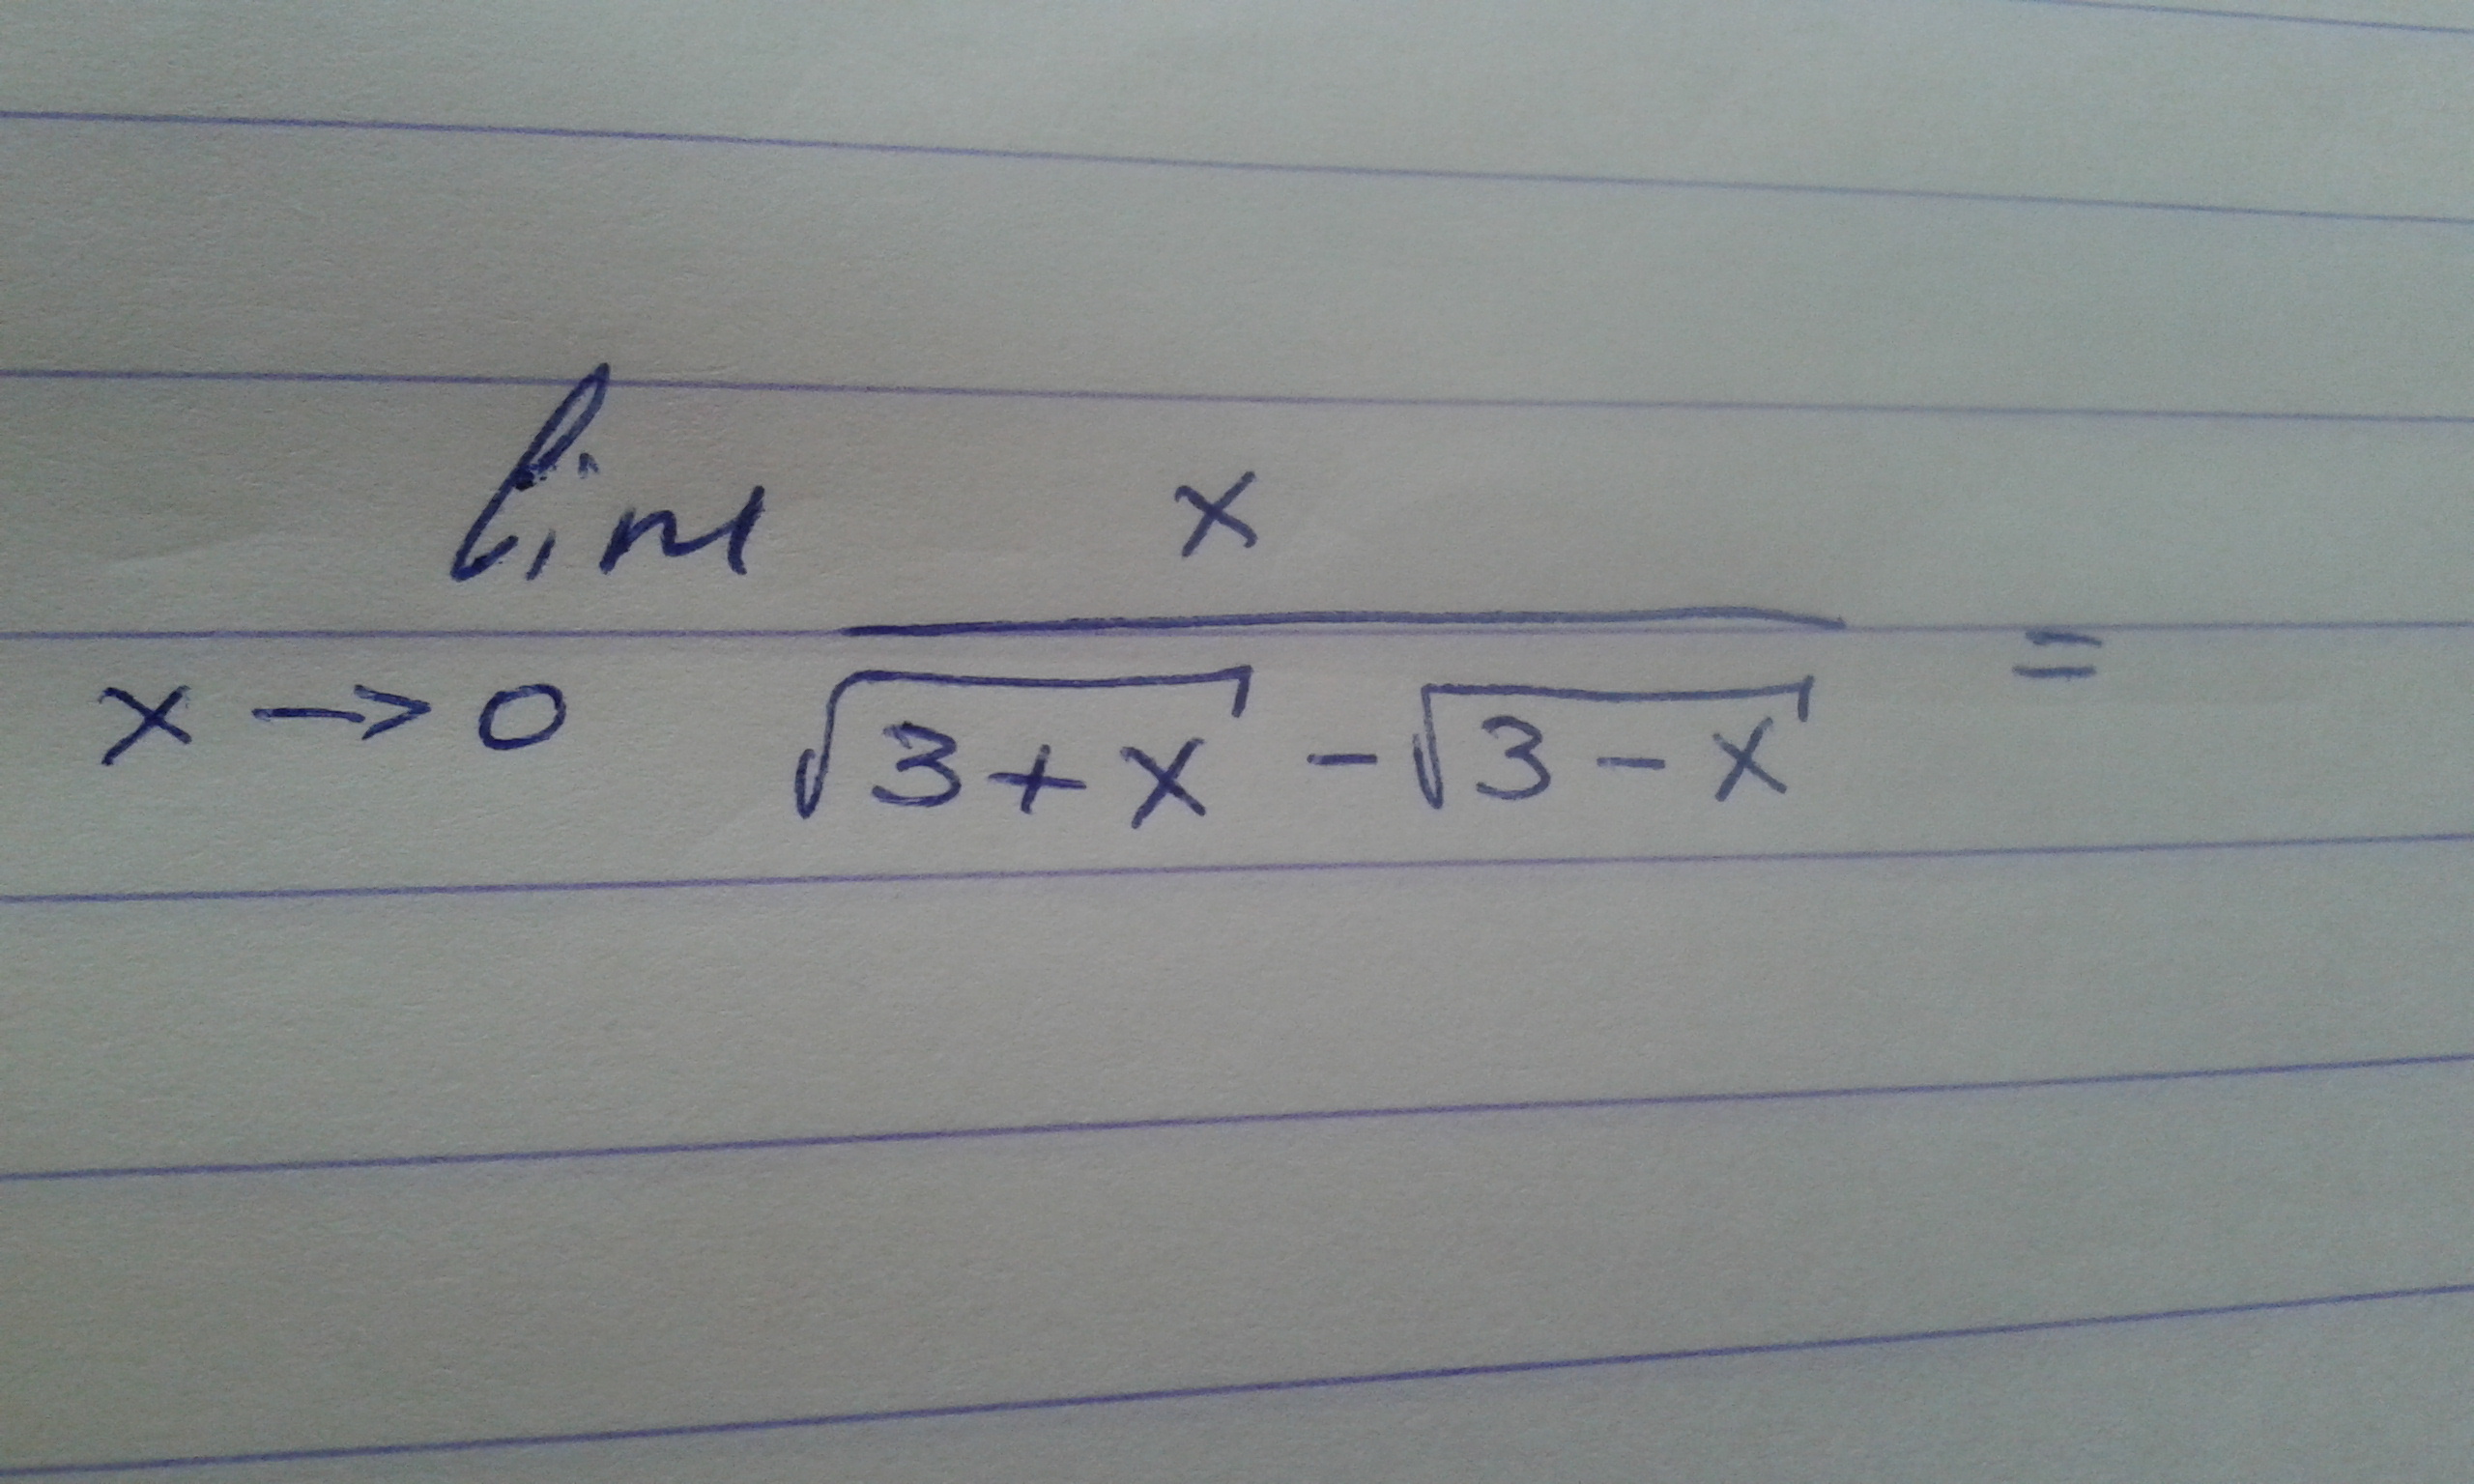 lim x
x → 0 √3+x - √3-x =